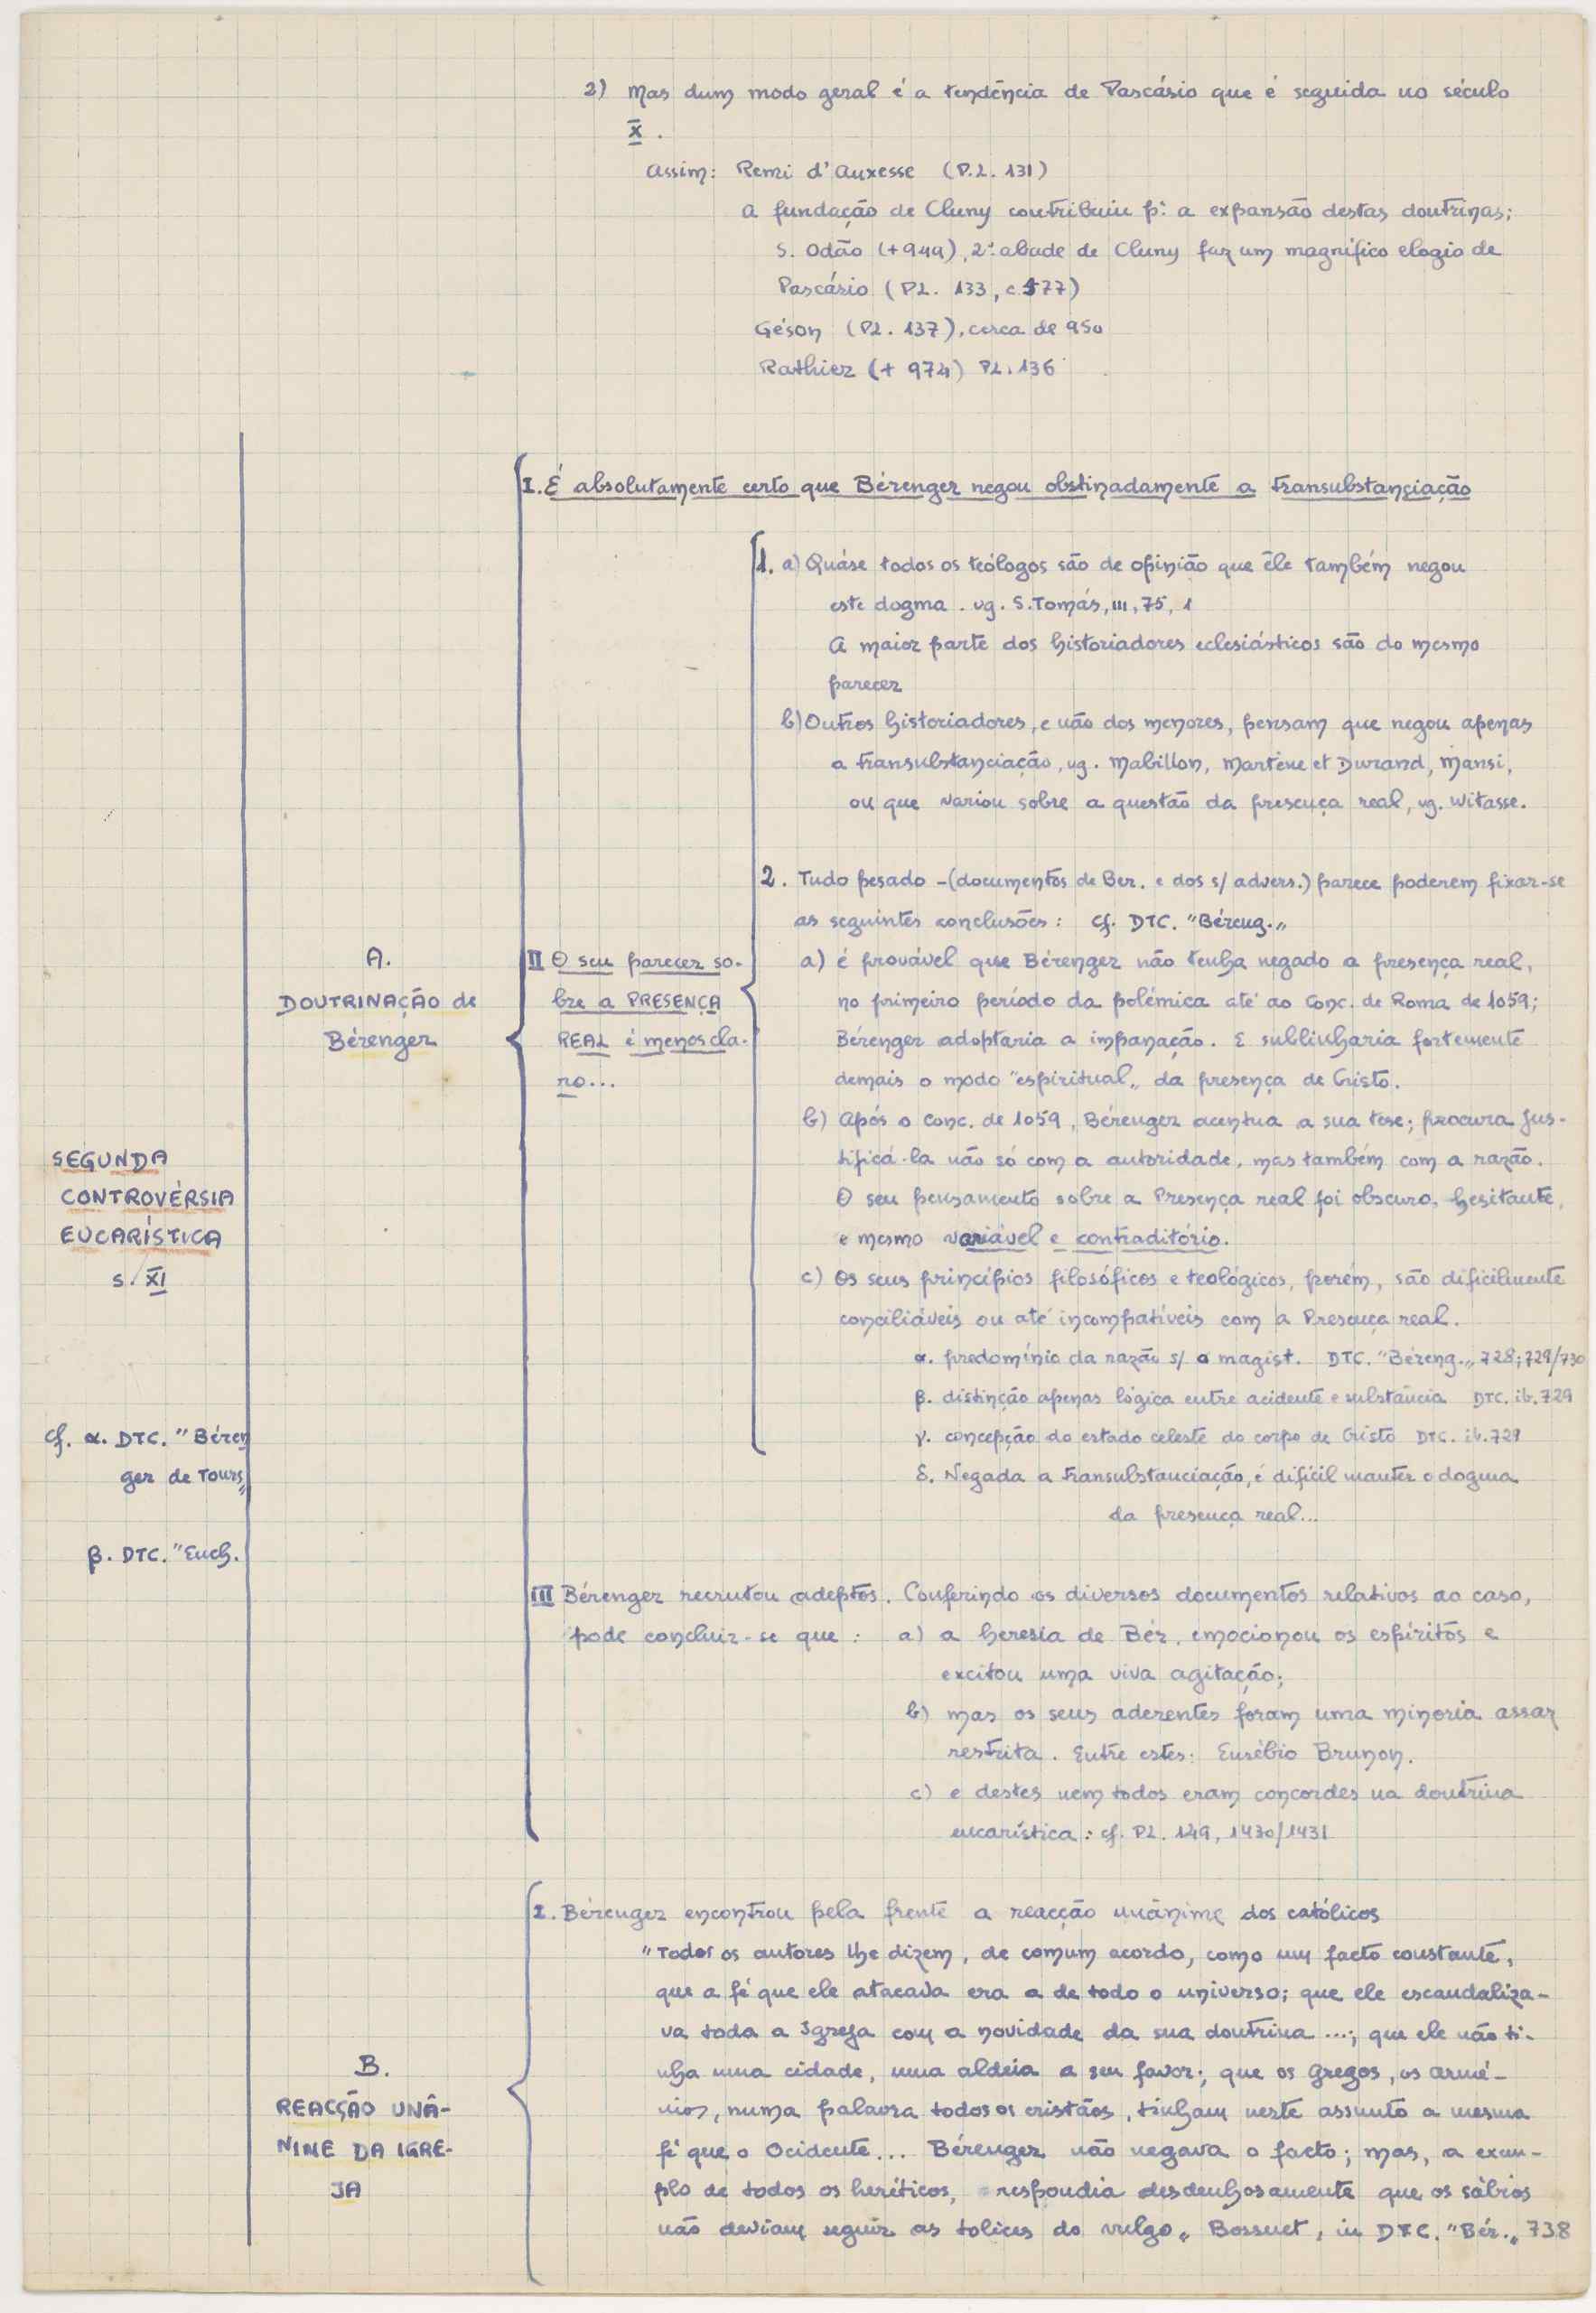 2) Mas dum modo geral é a tendência de Pascásio que é seguida no século
X.
Assim: Remi d'Auxesse (P.L. 131)
A fundação de Cluny contribuiu p: a expansão destas doutrinas;
S. Odão (+949), 2º abade de Cluny faz um magnífico elogio de
Pascásio (PL. 133, c. 577)
Géson (PL. 137), cerca de 950
Rathier (+ 974) PL. 136
SEGUNDA
CONTROVÉRSIA
EUCARÍSTICA
s. XI
cf. α. DTC. "Béren
ger de Tours"
β. DTC. "Euch.
A.
DOUTRINAÇÃO de
Bérenger
I. É absolutamente certo que Bérenger negou obstinadamente a transubstanciação
II O seu parecer so-
bre a PRESENÇA
REAL é menos cla-
ro...
1. a) Quáse todos os teólogos são de opinião que êle também negou
este dogma. vg. S. Tomás, III, 75, 1
A maior parte dos historiadores eclesiásticos são do mesmo
parecer
b) Outros historiadores, e não dos menores, pensam que negou apenas
a transubstanciação, vg. Mabillon, Martène et Durand, Mansi,
ou que variou sobre a questão da presença real, vg. Witasse.
2. Tudo pesado - (documentos de Ber. e dos s/ advers.) parece poderem fixar-se
as seguintes conclusões: cf. DTC. "Béreng."
a) é provável que Bérenger não tenha negado a presença real,
no primeiro período da polémica até ao Conc. de Roma de 1059;
Bérenger adoptaria a impanação. E sublinharia fortemente
demais o modo "espiritual" da presença de Cristo.
b) Após o Conc. de 1059, Bérenger acentua a sua tese; procura jus-
tificá-la não só com a autoridade, mas também com a razão.
O seu pensamento sobre a Presença real foi obscuro, hesitante,
e mesmo variável e contraditório.
c) Os seus princípios filosóficos e teológicos, porém, são dificilmente
conciliáveis ou até incompatíveis com a Presença real.
α. predomínio da razão s/ o magist. DTC. "Béreng.," 728; 729/730
β. distinção apenas lógica entre acidente e substância DTC. ib. 729
γ. concepção do estado celeste do corpo de Cristo DTC. ib. 729
δ. Negada a transubstanciação, é difícil manter o dogma
da presença real...
III Bérenger recrutou adeptos. Conferindo os diversos documentos relativos ao caso,
pode concluir-se que: a) a heresia de Bér. emocionou os espíritos e
excitou uma viva agitação;
b) mas os seus aderentes foram uma minoria assaz
restrita. Entre estes: Eusébio Brunon.
c) e destes nem todos eram concordes na doutrina
eucarística: cf. PL. 149, 1430/1431
B.
REACÇÃO UNÂ-
NIME DA IGRE-
JA
I. Bérenger encontrou pela frente a reacção unânime dos católicos
"Todos os autores lhe dizem, de comum acordo, como um facto constante,
que a fé que ele atacava era a de todo o universo; que ele escandaliza-
va toda a Igreja com a novidade da sua doutrina ...; que ele não ti-
nha uma cidade, uma aldeia a seu favor; que os gregos, os armé-
nios, numa palavra todos os cristãos, tinham neste assunto a mesma
fé que o Ocidente... Bérenger não negava o facto; mas, a exem-
plo de todos os heréticos, respondia desdenhosamente que os sábios
não deviam seguir as tolices do vulgo" Bossuet, in DTC. "Bér." 738